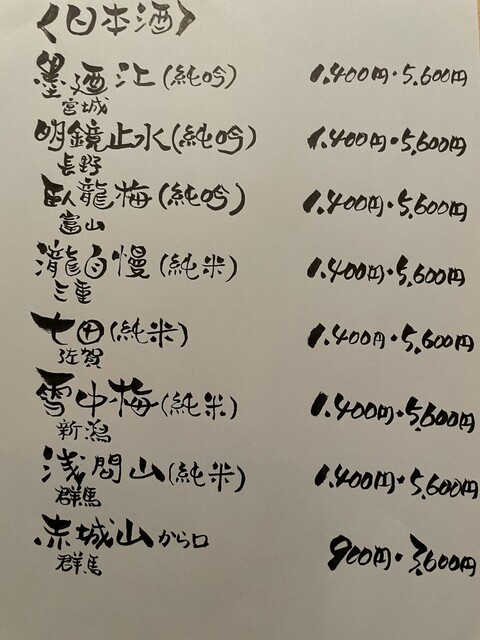 〈日本酒〉
墨廼江(純吟) 1,400円・5,600円
宮城
明鏡止水(純吟) 1,400円・5,600円
長野
臥龍梅(純吟) 1,400円・5,600円
富山
瀧自慢(純米) 1,400円・5,600円
三重
七田(純米) 1,400円・5,600円
佐賀
雪中梅(純米) 1,400円・5,600円
新潟
浅間山(純米) 1,400円・5,600円
群馬
赤城山から口 900円・3,600円
群馬